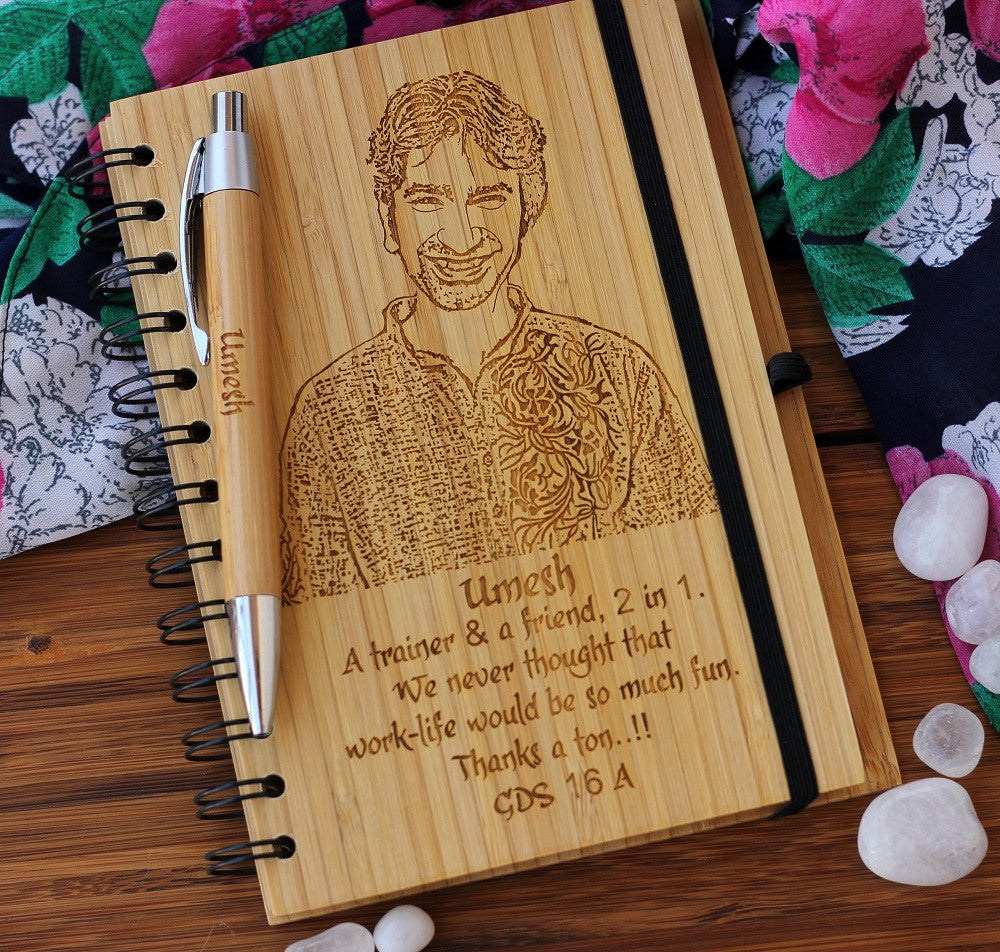 Umesh
Umesh
A trainer & a friend, 2 in 1.
We never thought that
work-life would be so much fun.
Thanks a ton..!!
GDS 16 A